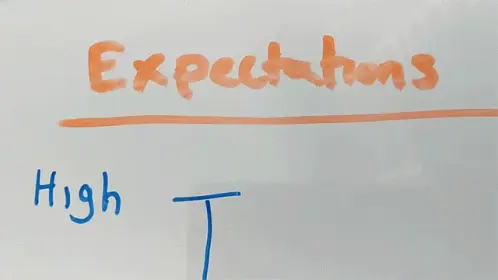 Expectations
High